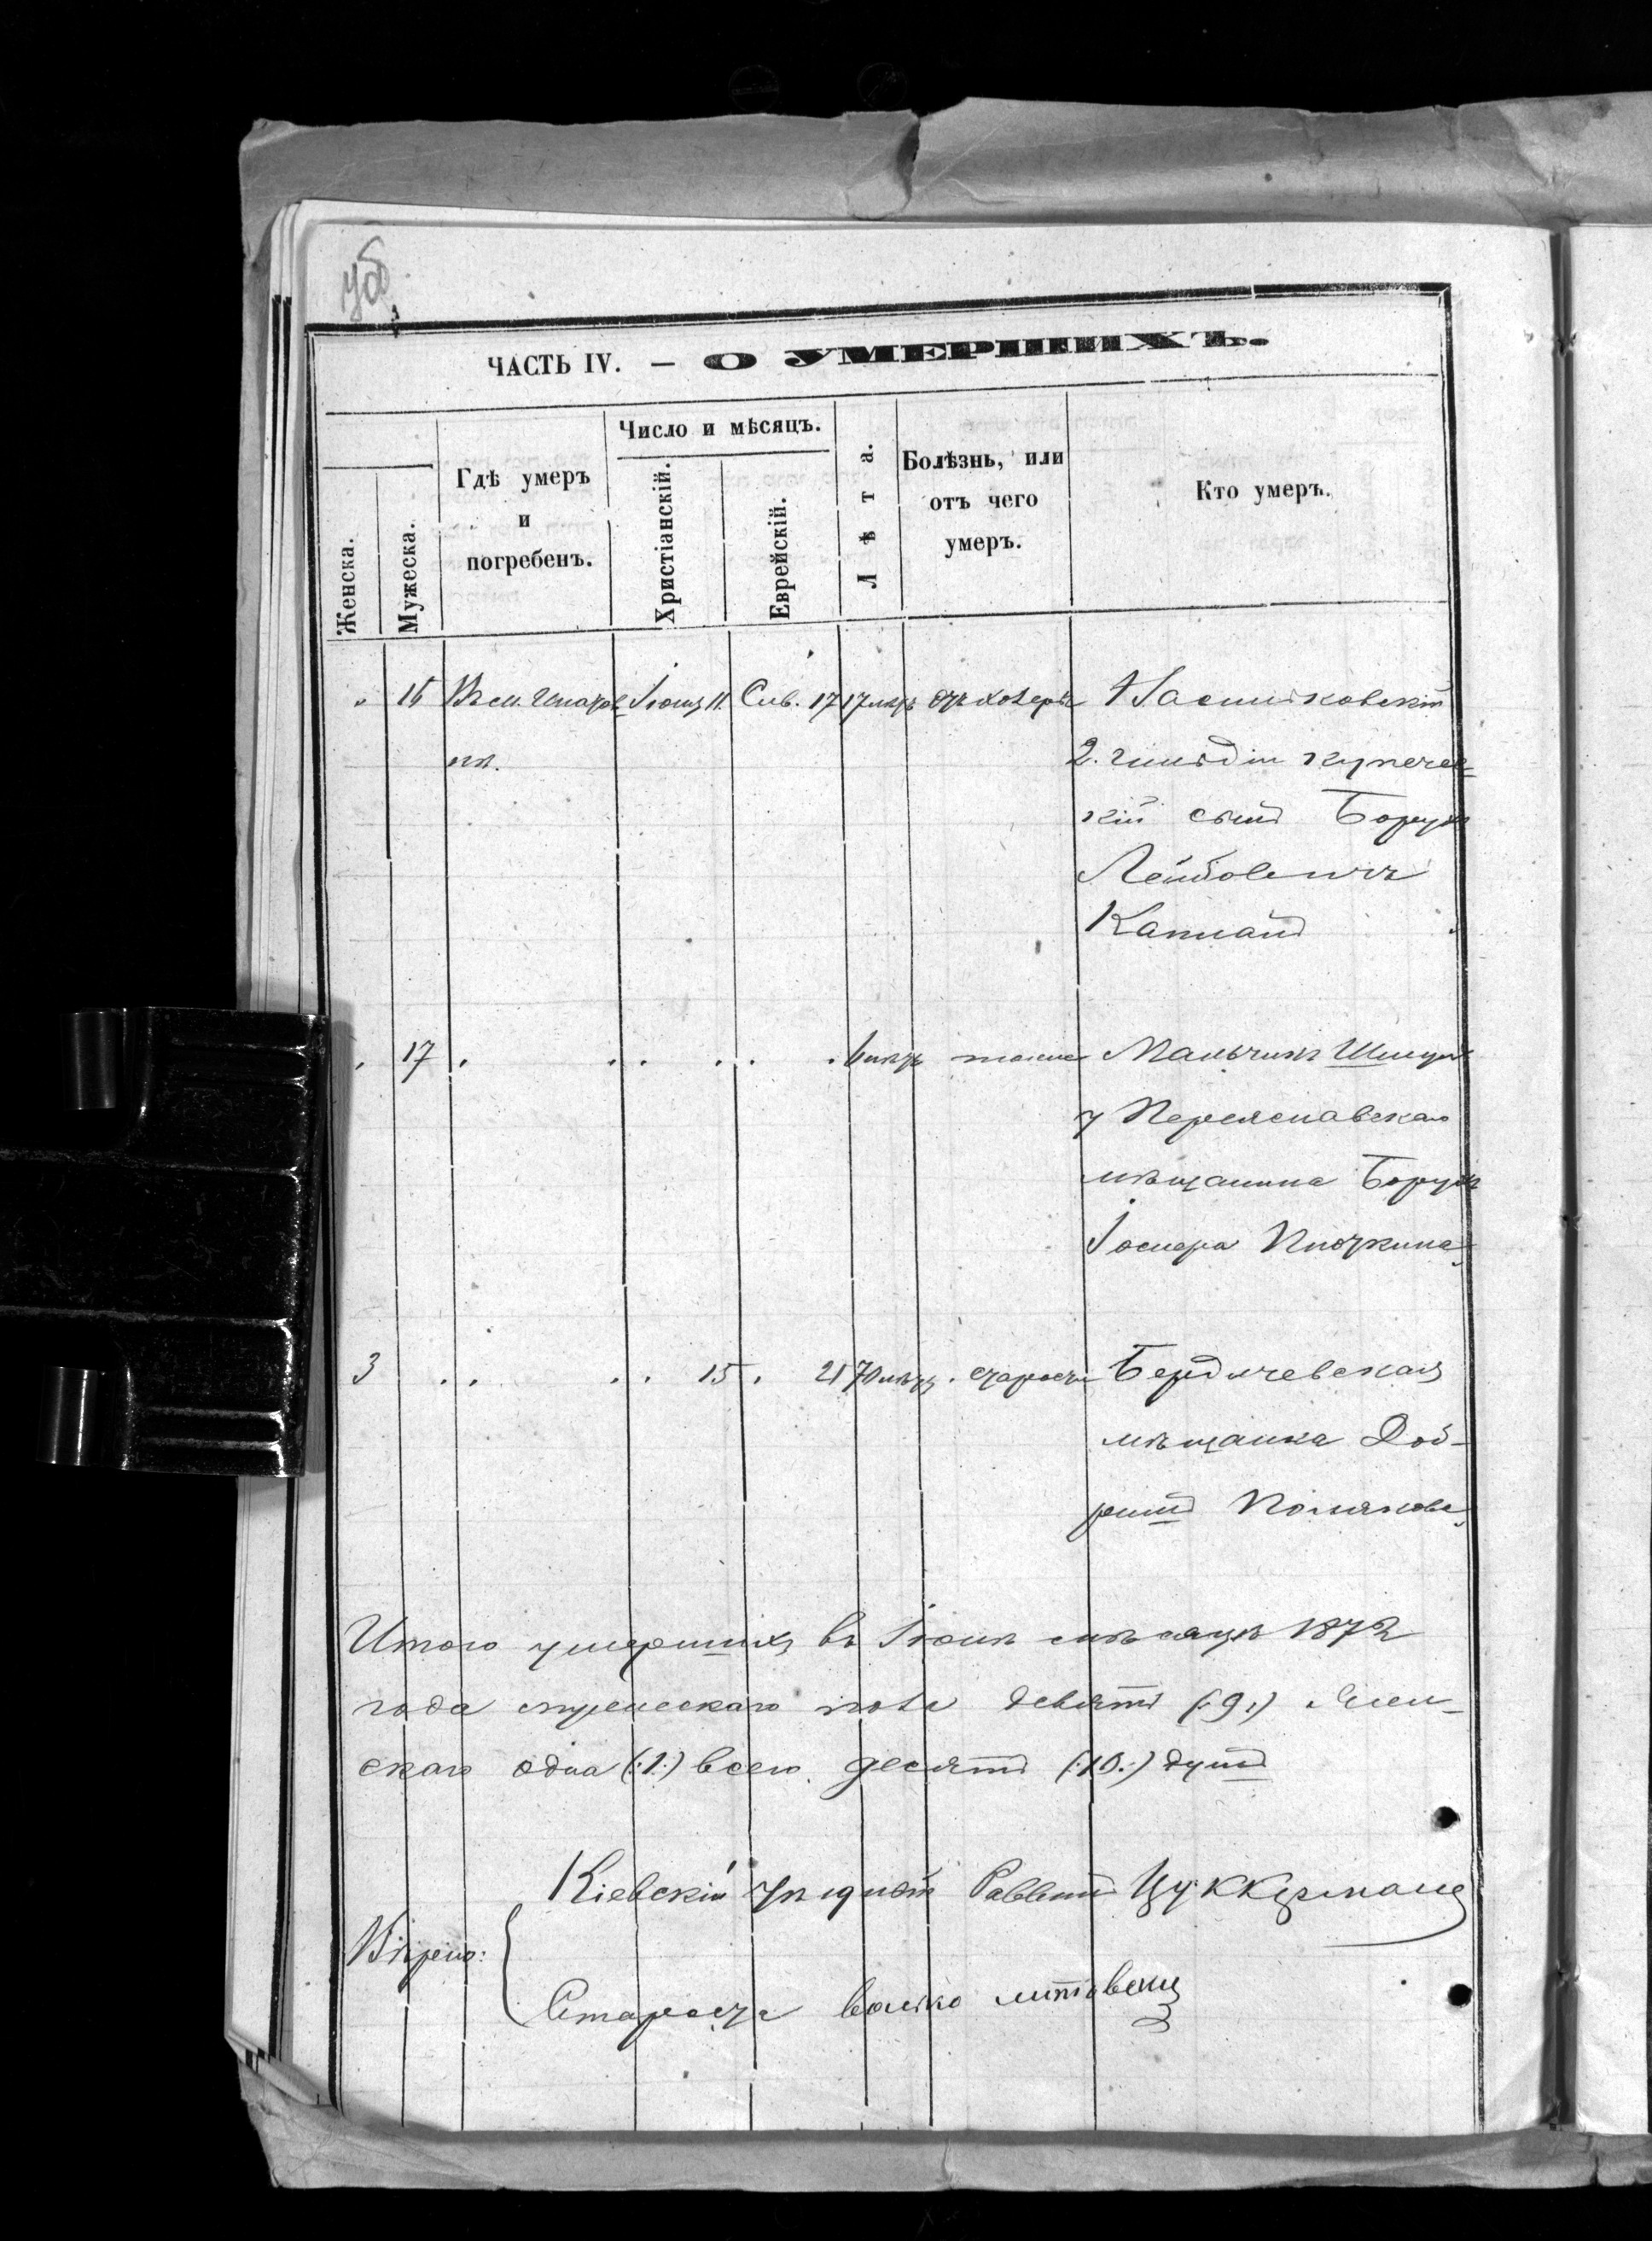 ЧАСТЬ IV. — О УМЕРШИХЪ.
Женска.
Мужеска.
Гдѣ умеръ
и
погребенъ.
Число и мѣсяцъ.
Христіанскій.
Еврейскій.
Лѣта.
Болѣзнь, или
отъ чего
умеръ.
Кто умеръ.
„ 16 Въ м. Іюня 11. Сив. 17 17 лѣтъ отъ холеры Васильковскій
2. гильдіи купечес=
кій сынъ Борухъ
Лейбовичъ
Капланъ
17 лѣтъ тоже Мальчикъ Шмуль
у Переяславскаго
мѣщанина Борухъ
Іосифа Плоткина
3 15 21 70 лѣтъ старость Бердичевская
мѣщанка Доб-
рышъ Полякова
Итого умершихъ въ Іюнѣ мѣсяцѣ 1872
года мужескаго пола девять (:9:) Жен-
скаго одна (:1:) всего десять (:10:) душъ
Кіевскій Раввинъ Цуккерманъ
Вѣрно:
Староста Волько Литовецъ